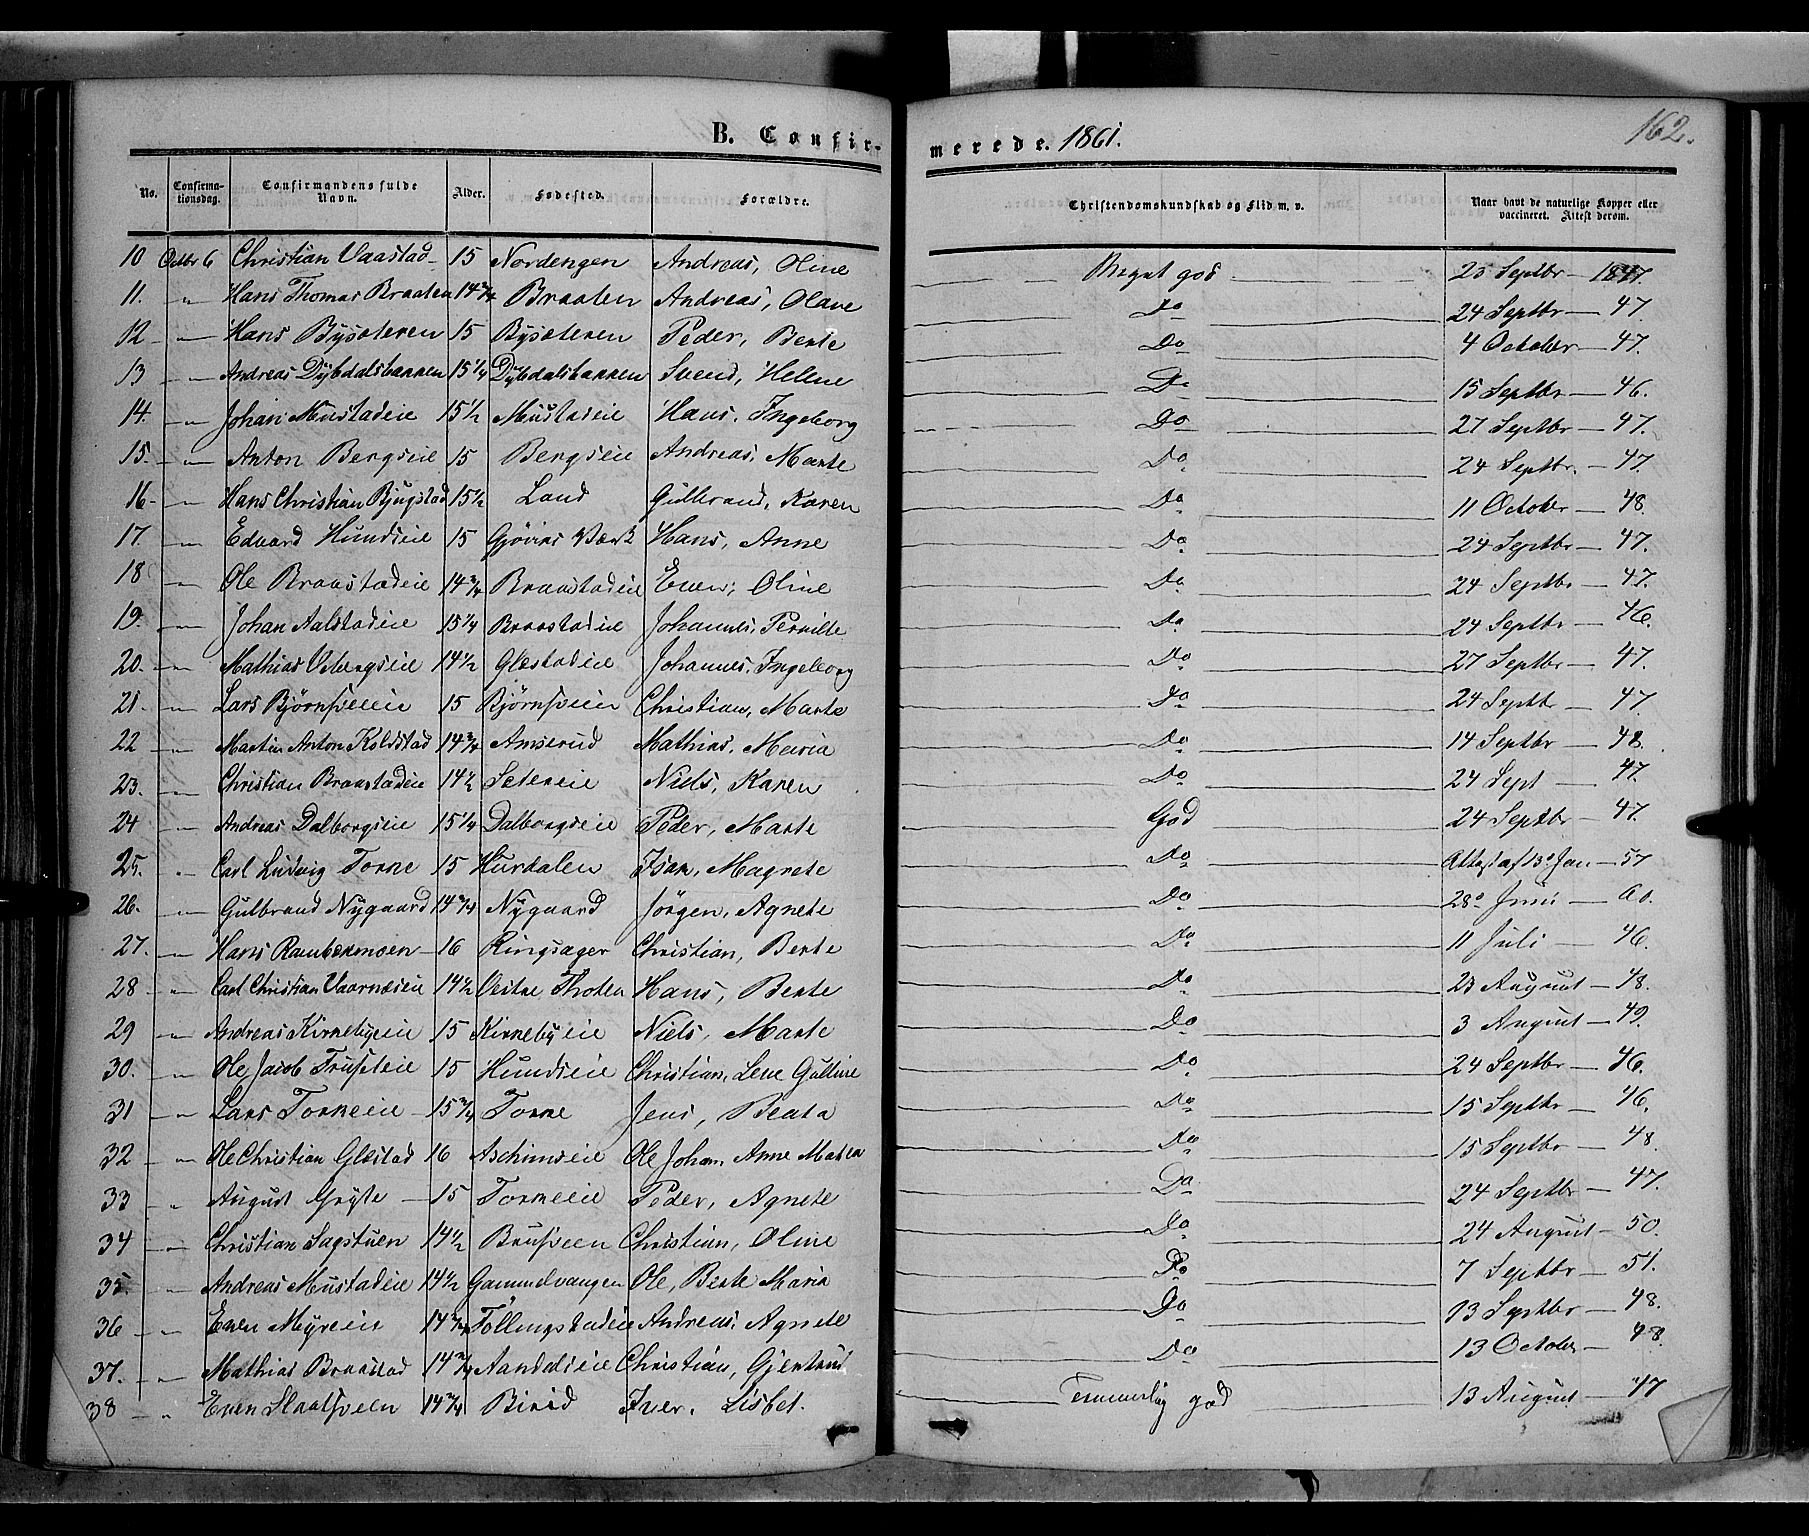 B. Confirmerede. 1861.
162.
No. Confirmationsdag. Confirmandens fulde Navn. Alder. Fødested. Forældre. Christendomskundskab og Flid m. v. Naar havt de naturlige Kopper eller vaccineret. Attest derom.
10 Octbr 6 Christian Vaastad 15 Nordengen Andreas, Oline Meget god 25 Septbr 1847.
11. " Hans Thomas Braaten 14 3/4 Braaten Andreas, Olave Do 24 Septbr 47.
12 " Hans Bysæteren 15 Bysæteren Peder, Berte Do 4 October 47.
13 " Andreas Dybdalsbakken 15 1/4 Dybdalsbakken Svend, Helene Do 15 Septbr 46.
14. " Johan Mustadeie 15 1/2 Mustadeie Hans, Ingeborg Do 27 Septbr 47.
15. " Anton Bergseie 15 Bergseie Andreas, Marte Do 24 Septbr. 47.
16 " Hans Christian Bjugstad 15 1/2 Land Gulbrand, Karen Do 11 October 48.
17. " Edvard Hundseie 15 Gjøviks Værk Hans, Anne Do 24 Septbr 47.
18 " Ole Braastadeie 14 3/4 Braastadeie Even, Oline Do 24 Septbr 47.
19. " Johan Aalstadeie 15 1/4 Braastadeie Johannes, Pernille Do 24 Septbr 46.
20. " Mathias Vebergseie 14 1/2 Glæstadeie Johannes, Ingeborg Do 27 Septbr 47.
21. " Lars Bjørnsveeie 15 Bjørnsveein Christian, Marte Do 24 Septbr 47.
22 " Martin Anton Koldstad 14 3/4 Amserud Mathias, Maria Do 14 Septbr 48.
23. " Christian Braastadeie 14 1/2 Setereie Niels, Karen Do 24 Sept 47.
24 " Andreas Dalborgseie 15 1/4 Dalborgseie Peder, Marte God 24 Septbr 47.
25. " Carl Ludvig Torne 15 Hurdalen Isak, Magrete Do Attest af 30 Jan 57
26. " Gulbrand Nygaard 14 3/4 Nygaard Jørgen, Agnete Do 28 Juni
27. " Hans Rambekmoen 16 Ringsager Christian, Berte Do 11 Juli 46.
28 " Carl Christian Vaarnæseie 14 1/2 Vestre Thoten Hans, Berte Do 23 August 48.
29 " Andreas Kirkebyeie 15 Kirkebyeie Niels, Marte Do 3 August 49.
30. " Ole Jacob Fruseteie 15 Hundseie Christian, Lene Gulline Do 24 Septbr 46.
31 " Lars Torkeeie 15 3/4 Torke Jens, Beata Do 15 Septbr 46.
32 " Ole Christian Glæstad 16 Aschimseie Ole Johan, Anne Maria Do 15 Septbr 48.
33 " August Gryte 15 Torkeeie Peder, Agnete Do 24 Septbr 47.
34 " Christian Sagstuen 14 1/2 Brusveen Christian, Oline Do 24 August 50.
35. " Andreas Mustadeie 14 1/2 Gammelvangen Ole, Berte Maria Do 7 Septbr 51.
36 " Even Myreeie 14 3/4 Föllingstadeie Andreas, Agnete Do 13 Septbr 48.
37. " Mathias Braastad 14 3/4 Christian, Gjertrud Do 13 October 48.
38 " Even Slaatsveen 14 3/4 Birid Iver, Lisbet. Temmelig god 13 August 47